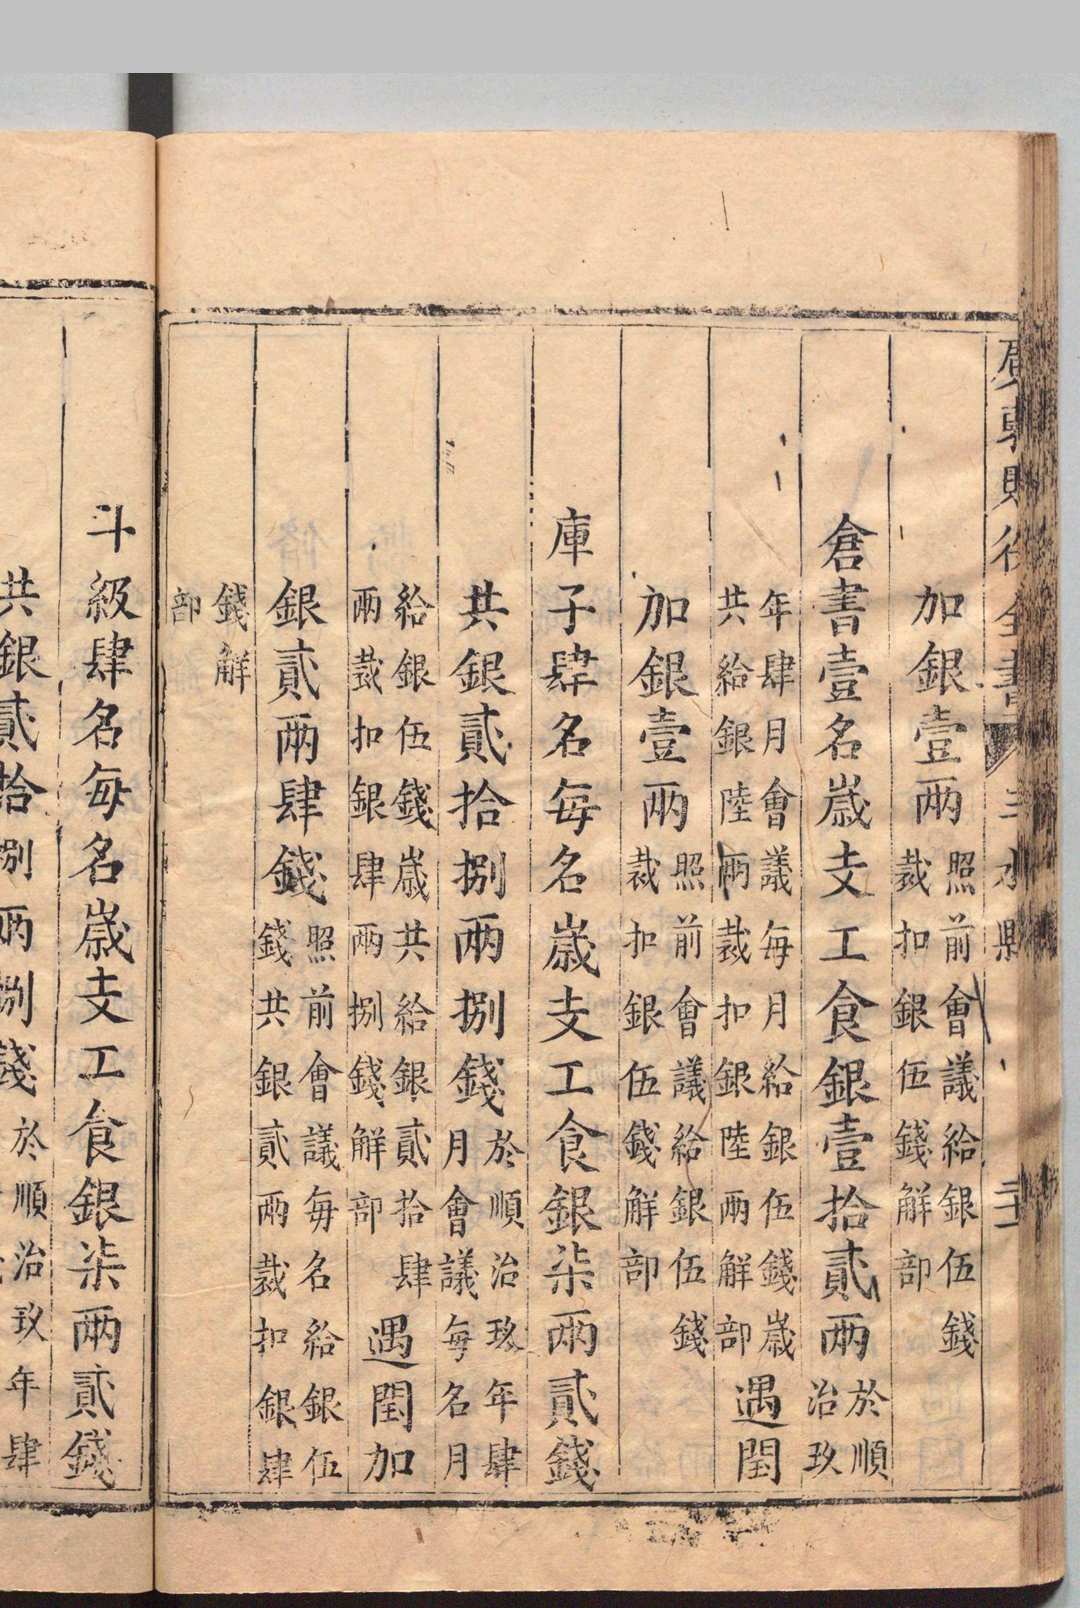 廣東賦役全書 三水縣
加銀壹兩
照前會議給銀伍錢
裁扣銀伍錢解部
倉書壹名歲支工食銀壹拾貳兩
於順
治玖
年肆月會議每月給銀伍錢歲
共給銀陸兩裁扣銀陸兩解部
遇閏
加銀壹兩
照前會議給銀伍錢
裁扣銀伍錢解部
庫子肆名每名歲支工食銀柒兩貳錢
共銀貳拾捌兩捌錢
於順治玖年肆
月會議每名月
給銀伍錢歲共給銀貳拾肆
兩裁扣銀肆兩捌錢解部
遇閏加
銀貳兩肆錢
照前會議每名給銀伍
錢共銀貳兩裁扣銀肆
錢解
部
斗級肆名每名歲支工食銀柒兩貳錢
共銀貳拾捌兩捌錢
於順治玖年肆